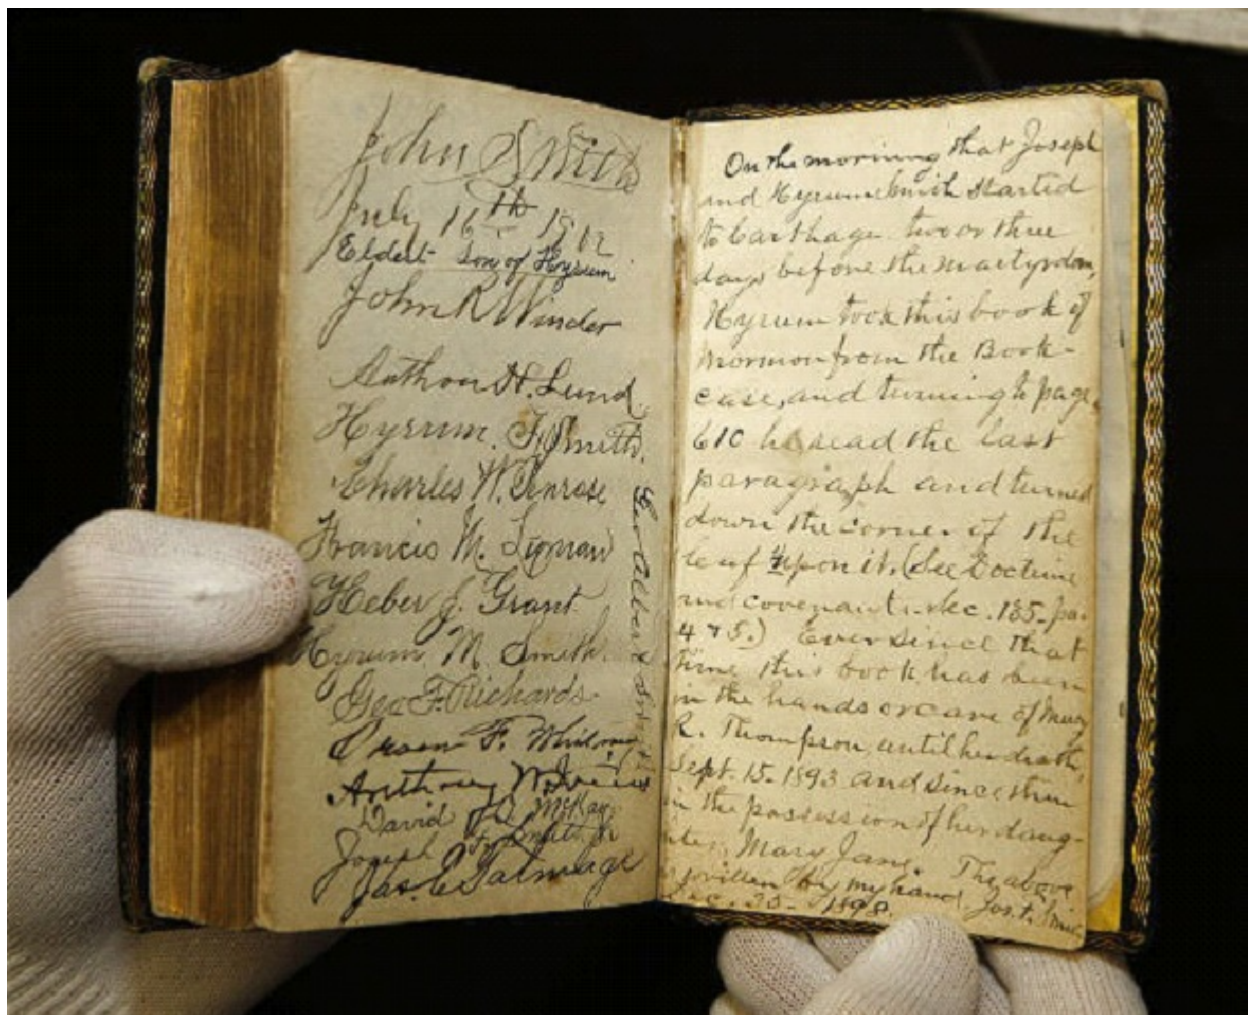 John Smith
July 16th 1912
Eldest son of Hyrum
John R Winder
Anthon H. Lund
Hyrum. F. Smith.
Charles W. Penrose
Francis M. Lyman
Heber J. Grant
Hyrum M. Smith
Geo F. Richards
Orson F. Whitney
Anthony W. Ivins
David O. McKay
Joseph F. Smith Jr
Jas. E Talmage
Geo Albert Smith
On the morning that Joseph
and Hyrum Smith started
to Carthage two or three
days before the martyrdom,
Hyrum took this book of
Mormon from the Book-
case, and turning to page
610 he read the last
paragraph and turned
down the corner of the
leaf upon it. (See Doctrine
and covenants. sec. 135. pa.
4 & 5.) Ever since that
time this book has been
in the hands or care of Mary
R. Thompson, until her death,
Sept. 15. 1893 and since then
in the possession of her daug-
hter, Mary Jane. The above
written by my hand, Jos. F. Smith